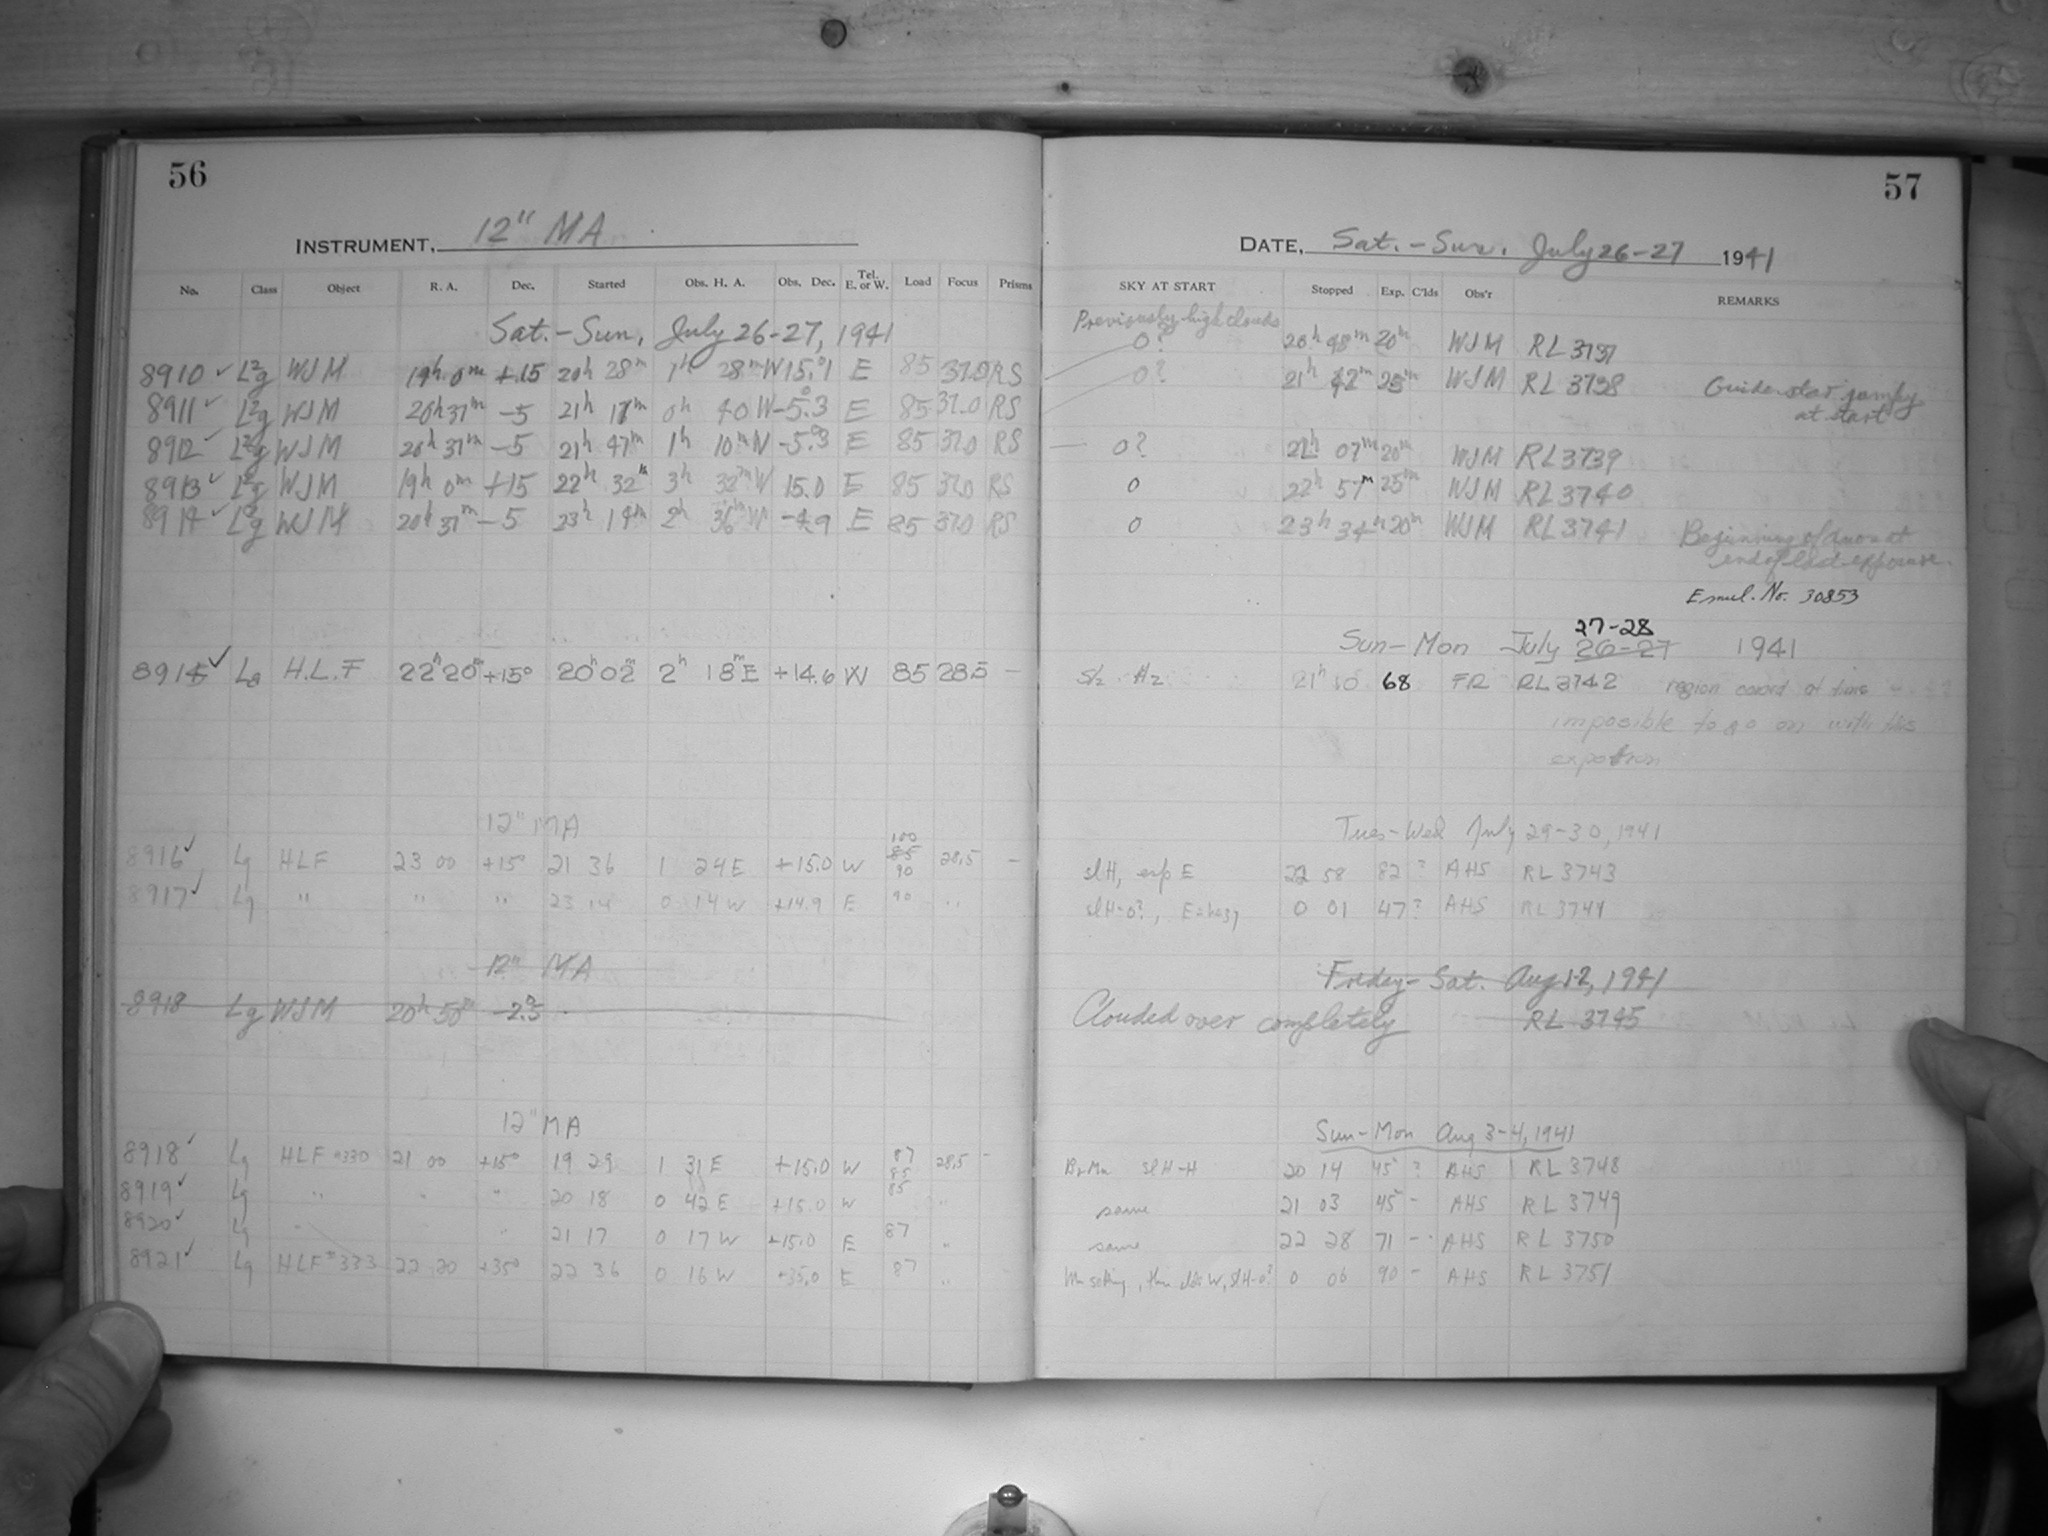 56
INSTRUMENT, 12" MA
No. Class Object R. A. Dec. Started Obs. H. A. Obs. Dec. Tel. E. or W. Load Focus Prisms
Sat.-Sun, July 26-27, 1941
8910 ✓ L²g WJM 19h 0m +15 20h 28m 1h 28m W 15.°1 E 85 37.0 RS
8911 ✓ L²g WJM 20h 37m -5 21h 17m 0h 40 W -5.°3 E 85 37.0 RS
8912 ✓ L²g WJM 20h 37m -5 21h 47m 1h 10m W -5.°3 E 85 37.0 RS
8913 ✓ L²g WJM 19h 0m +15 22h 32m 3h 32m W 15.0 E 85 37.0 RS
8914 ✓ L²g WJM 20h 37m -5 23h 14m 2h 36m W -4.9 E 85 37.0 RS
8915 ✓ Lg H.L.F 22h 20m +15° 20h 02m 2h 18m E +14.6 W 85 28.5 -
12" MA
8916 ✓ Lg HLF 23 00 +15° 21 36 1 24 E +15.0 W 100 85 90 28.5 -
8917 ✓ Lg " " " 23 14 0 14 W +14.9 E 90 "
12" MA
8918 Lg WJM 20h 50m -2.°5
12" MA
8918 ✓ Lg HLF #330 21 00 +15° 19 29 1 31 E +15.0 W 87 85 28.5 -
8919 ✓ Lg " " " 20 18 0 42 E +15.0 W 85 "
8920 ✓ Lg " " 21 17 0 17 W +15.0 E 87 "
8921 ✓ Lg HLF #333 22 20 +35° 22 36 0 16 W +35.0 E 87 "
57
DATE, Sat.-Sun. July 26-27 1941
SKY AT START Stopped Exp. C'lds Obs'r REMARKS
Previously high clouds
0? 20h 48m 20m WJM RL 3737
0? 21h 42m 25m WJM RL 3738 Guide star jumpy
at start
0? 22h 07m 20m WJM RL 3739
0 22h 57m 25m WJM RL 3740
0 23h 34m 20m WJM RL 3741 Beginning of dawn at
end of last exposure.
Emul. No. 30853
27-28
Sun-Mon July 26-27 1941
S½ H2 21h 10 68 FR RL 3742 region coverd at time -
imposible to go on with this
12" MA Tues-Wed July 29-30, 1941
slH, esp E 22 58 82 ? AHS RL 3743
slH-0?, 0 01 47 ? AHS RL 3744
Friday-Sat. Aug 1-2, 1941
Clouded over completely RL 3745
Sun-Mon Aug 3-4, 1941
Br Mn slH-H 20 14 45 ? AHS RL 3748
same 21 03 45 - AHS RL 3749
same 22 28 71 - AHS RL 3750
Mn setting, then W, slH-0? 0 06 90 - AHS RL 3751